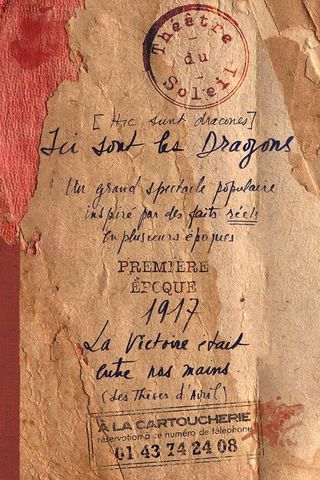 Théâtre du Soleil
[Hic sunt dracones]
Ici sont les Dragons
Un grand spectacle populaire
inspiré par des faits réels
en plusieurs époques
PREMIÈRE
ÉPOQUE
1917
La Victoire était
entre nos mains
(Les Thèses d'Avril)
À LA CARTOUCHERIE
réservation à ce numéro de téléphone
01 43 74 24 08